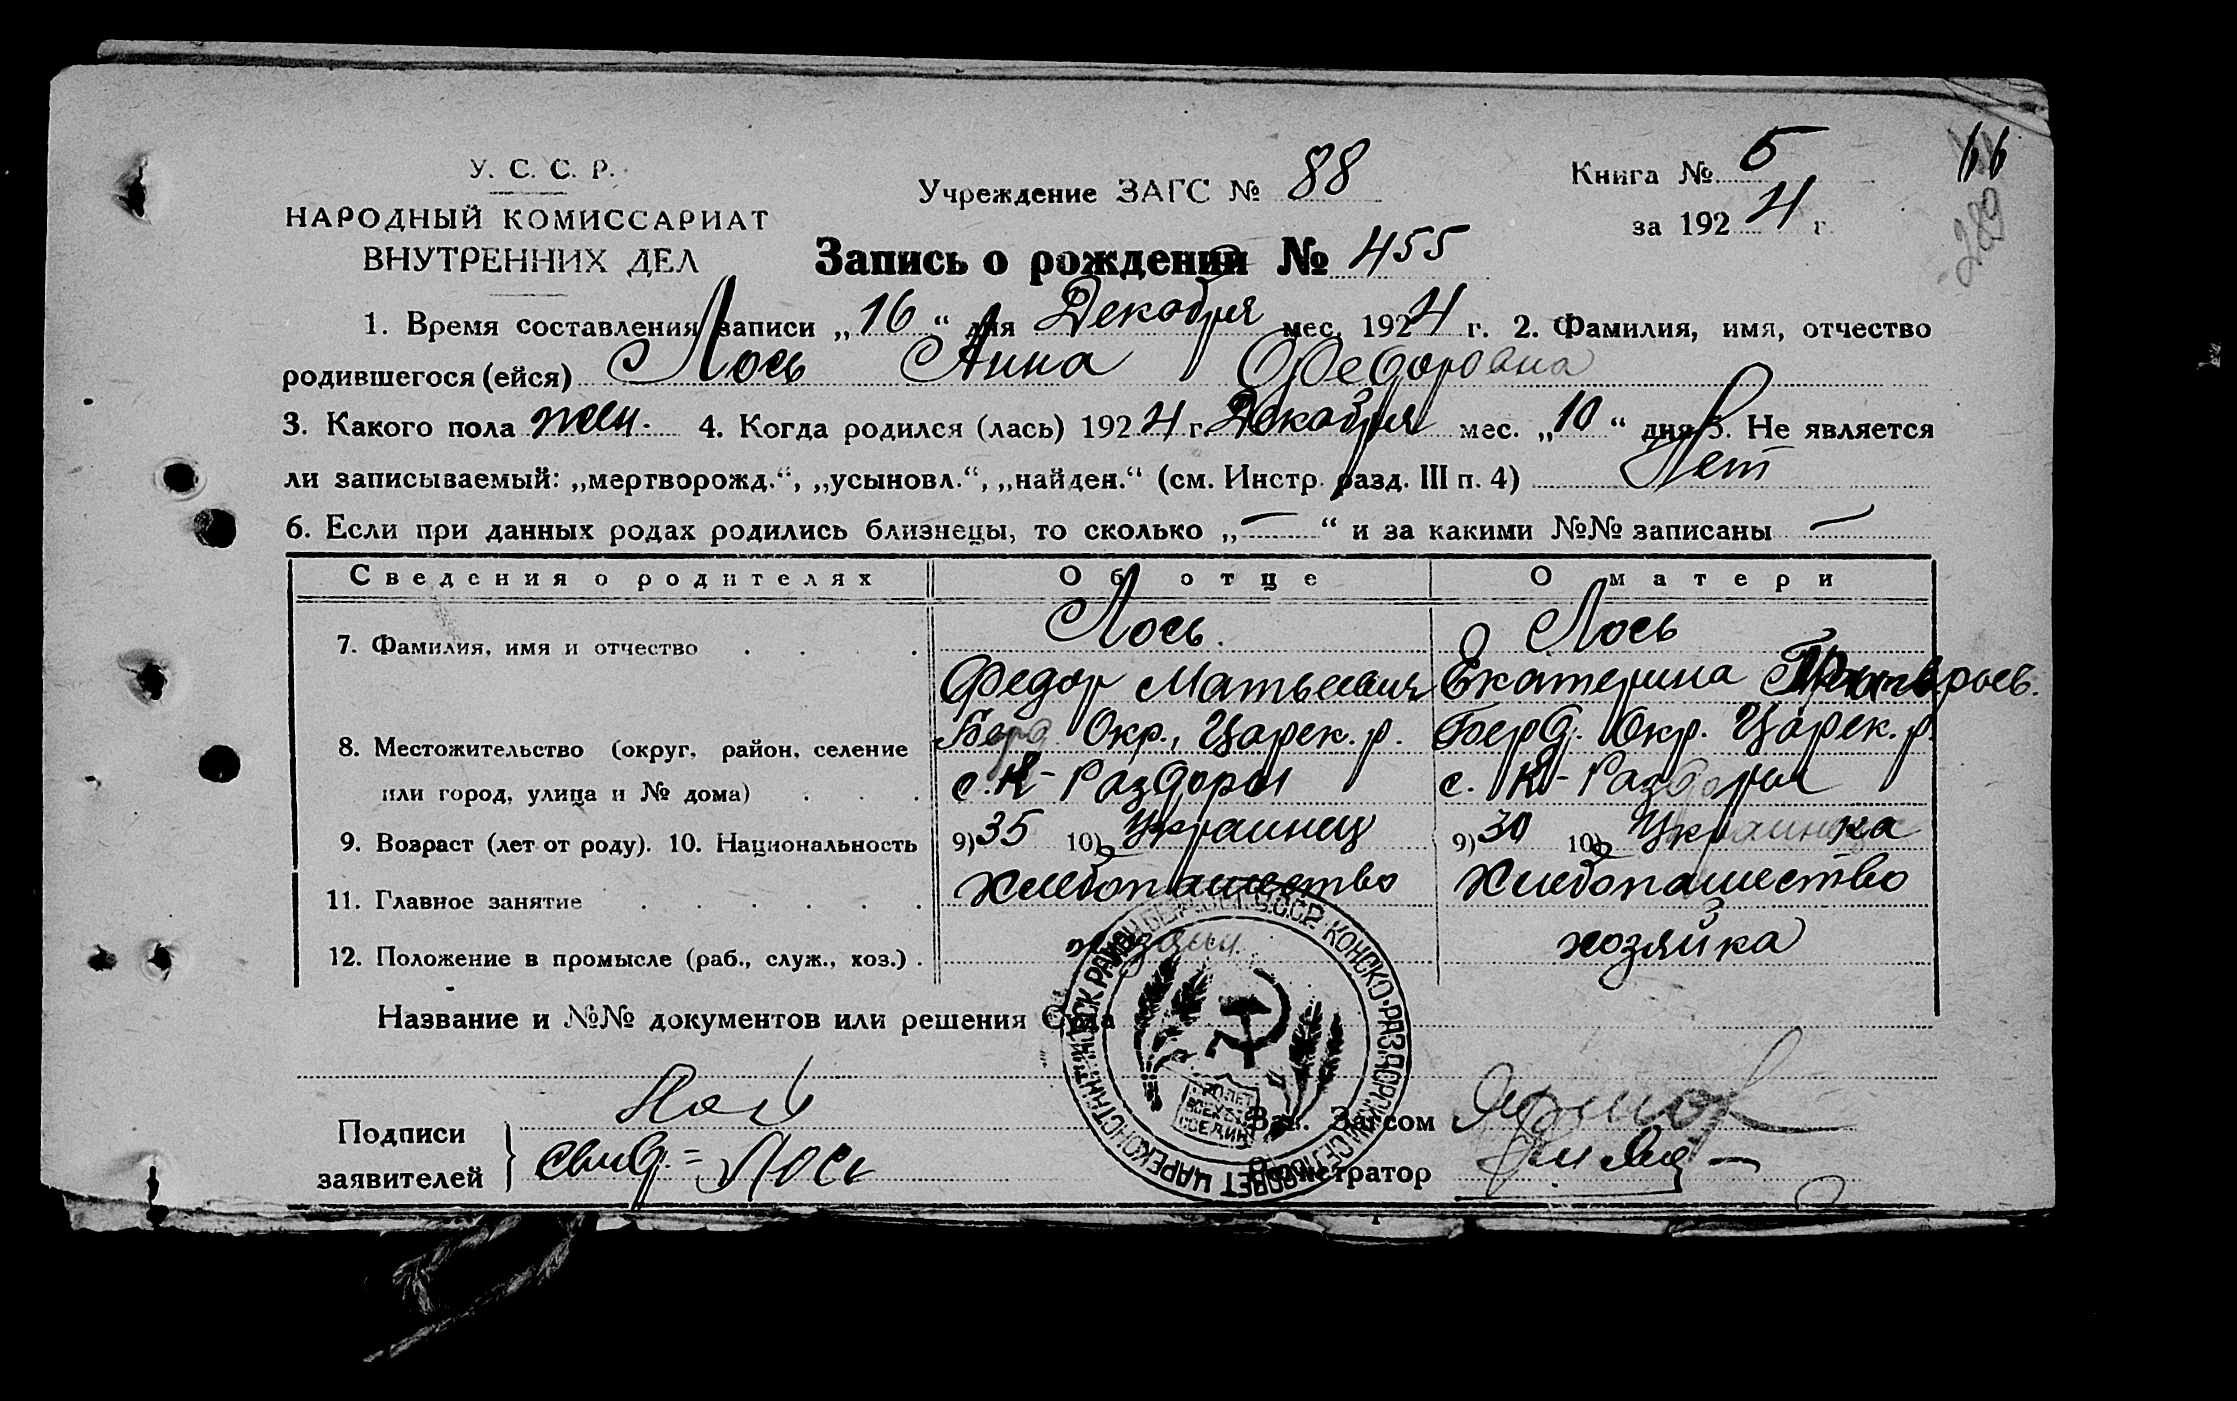 У. С. С. Р.
НАРОДНЫЙ КОМИССАРИАТ
ВНУТРЕННИХ ДЕЛ
Учреждение ЗАГС № 88
Книга № 5
за 1924 г.
66
289
Запись о рождении № 455
1. Время составления записи „16“ дня Декабря мес. 1924 г. 2. Фамилия, имя, отчество
родившегося (ейся) Лось Анна Федоровна
3. Какого пола жен. 4. Когда родился (лась) 1924 г. Декабря мес. „10“ дня 5. Не является
ли записываемый: „мертворожд.“, „усыновл.“, „найден.“ (см. Инстр. разд. III п. 4) Нет
6. Если при данных родах родились близнецы, то сколько „—“ и за какими №№ записаны —
Сведения о родителях Об отце О матери
7. Фамилия, имя и отчество . . . . Лось. Лось
Федор Матьвеевич Екатерина
8. Местожительство (округ, район, селение Берд. Окр., Царек. р. Берд. Окр. Царек. р.
или город, улица и № дома) . . . с. К-Раздоры с. К-Раздоры
9. Возраст (лет от роду). 10. Национальность 9) 35 10) Украинец 9) 30 10) Украинка
11. Главное занятие . . . . . . Хлебопашество Хлебопашество
12. Положение в промысле (раб., служ., хоз.) . хозяин. хозяйка
Название и №№ документов или решения Суда
КОНСКО-РАЗДОРСКИЙ СЕЛЬСОВЕТ ЦАРЕКОНСТАНТИНОВСК РАЙОН У.С.С.Р.
ПРОЛЕТ
ВСЕХ СТР
СОЕДИН
Подписи
заявителей
Лось
свид. = Лось
Зав. Загсом
Регистратор